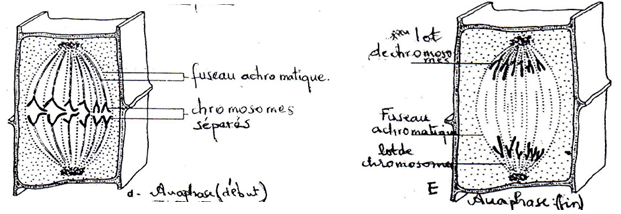 fuseau achromatique.
chromosomes
séparés
d- Anaphase (début)
lot
de chromoso
mes
Fuseau
achromatique
lot de
chromosomes
E
Anaphase: (fin)